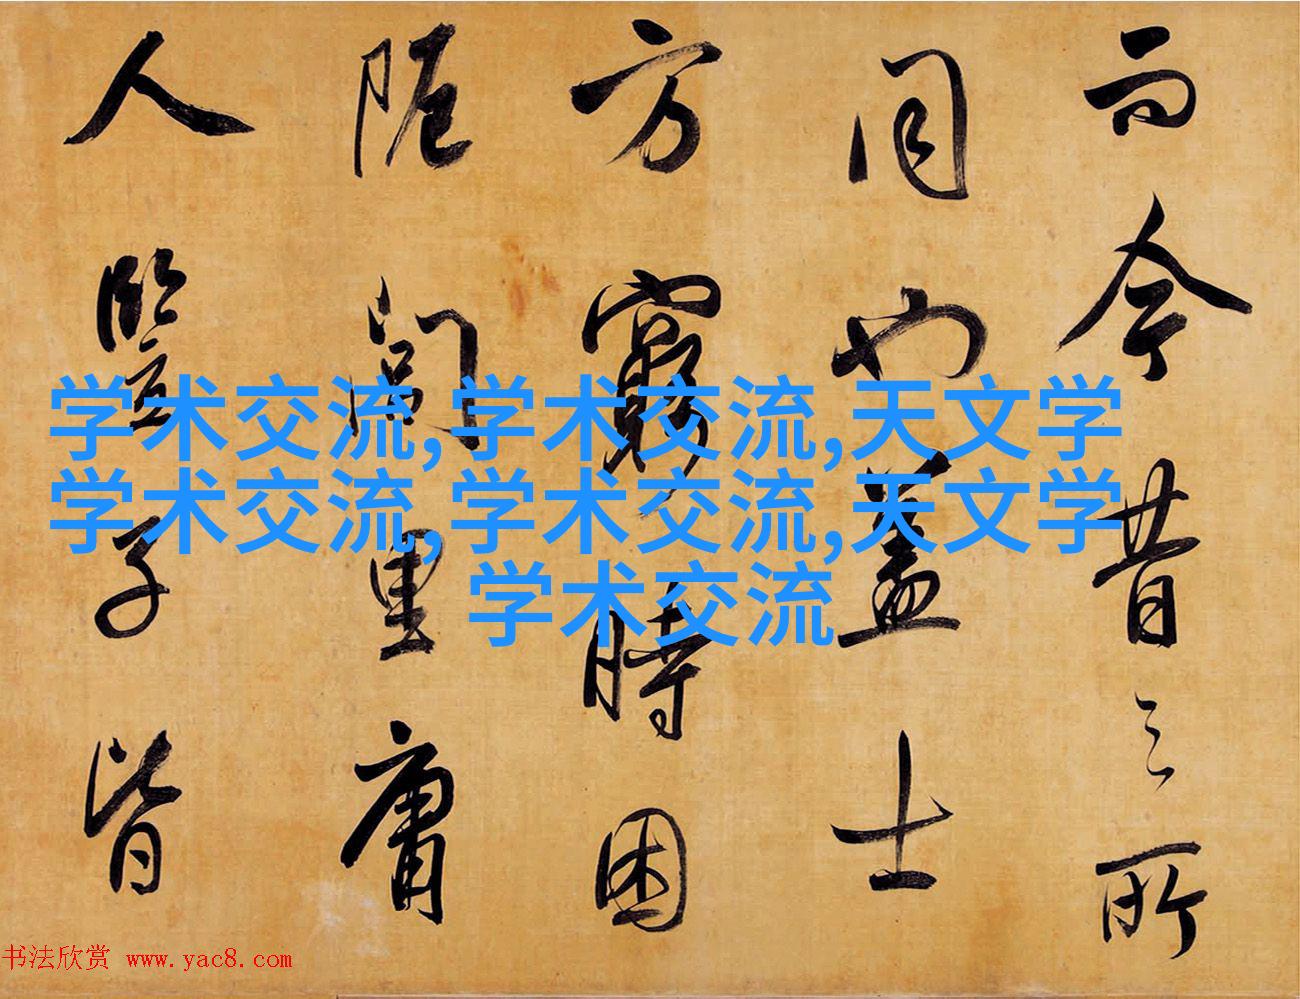 而今昔之所
同也盖士
方窮時困
阨閭里庸
人孺子皆
学术交流,学术交流,天文学
学术交流,学术交流,天文学
学术交流
书法欣赏 www.yac8.com